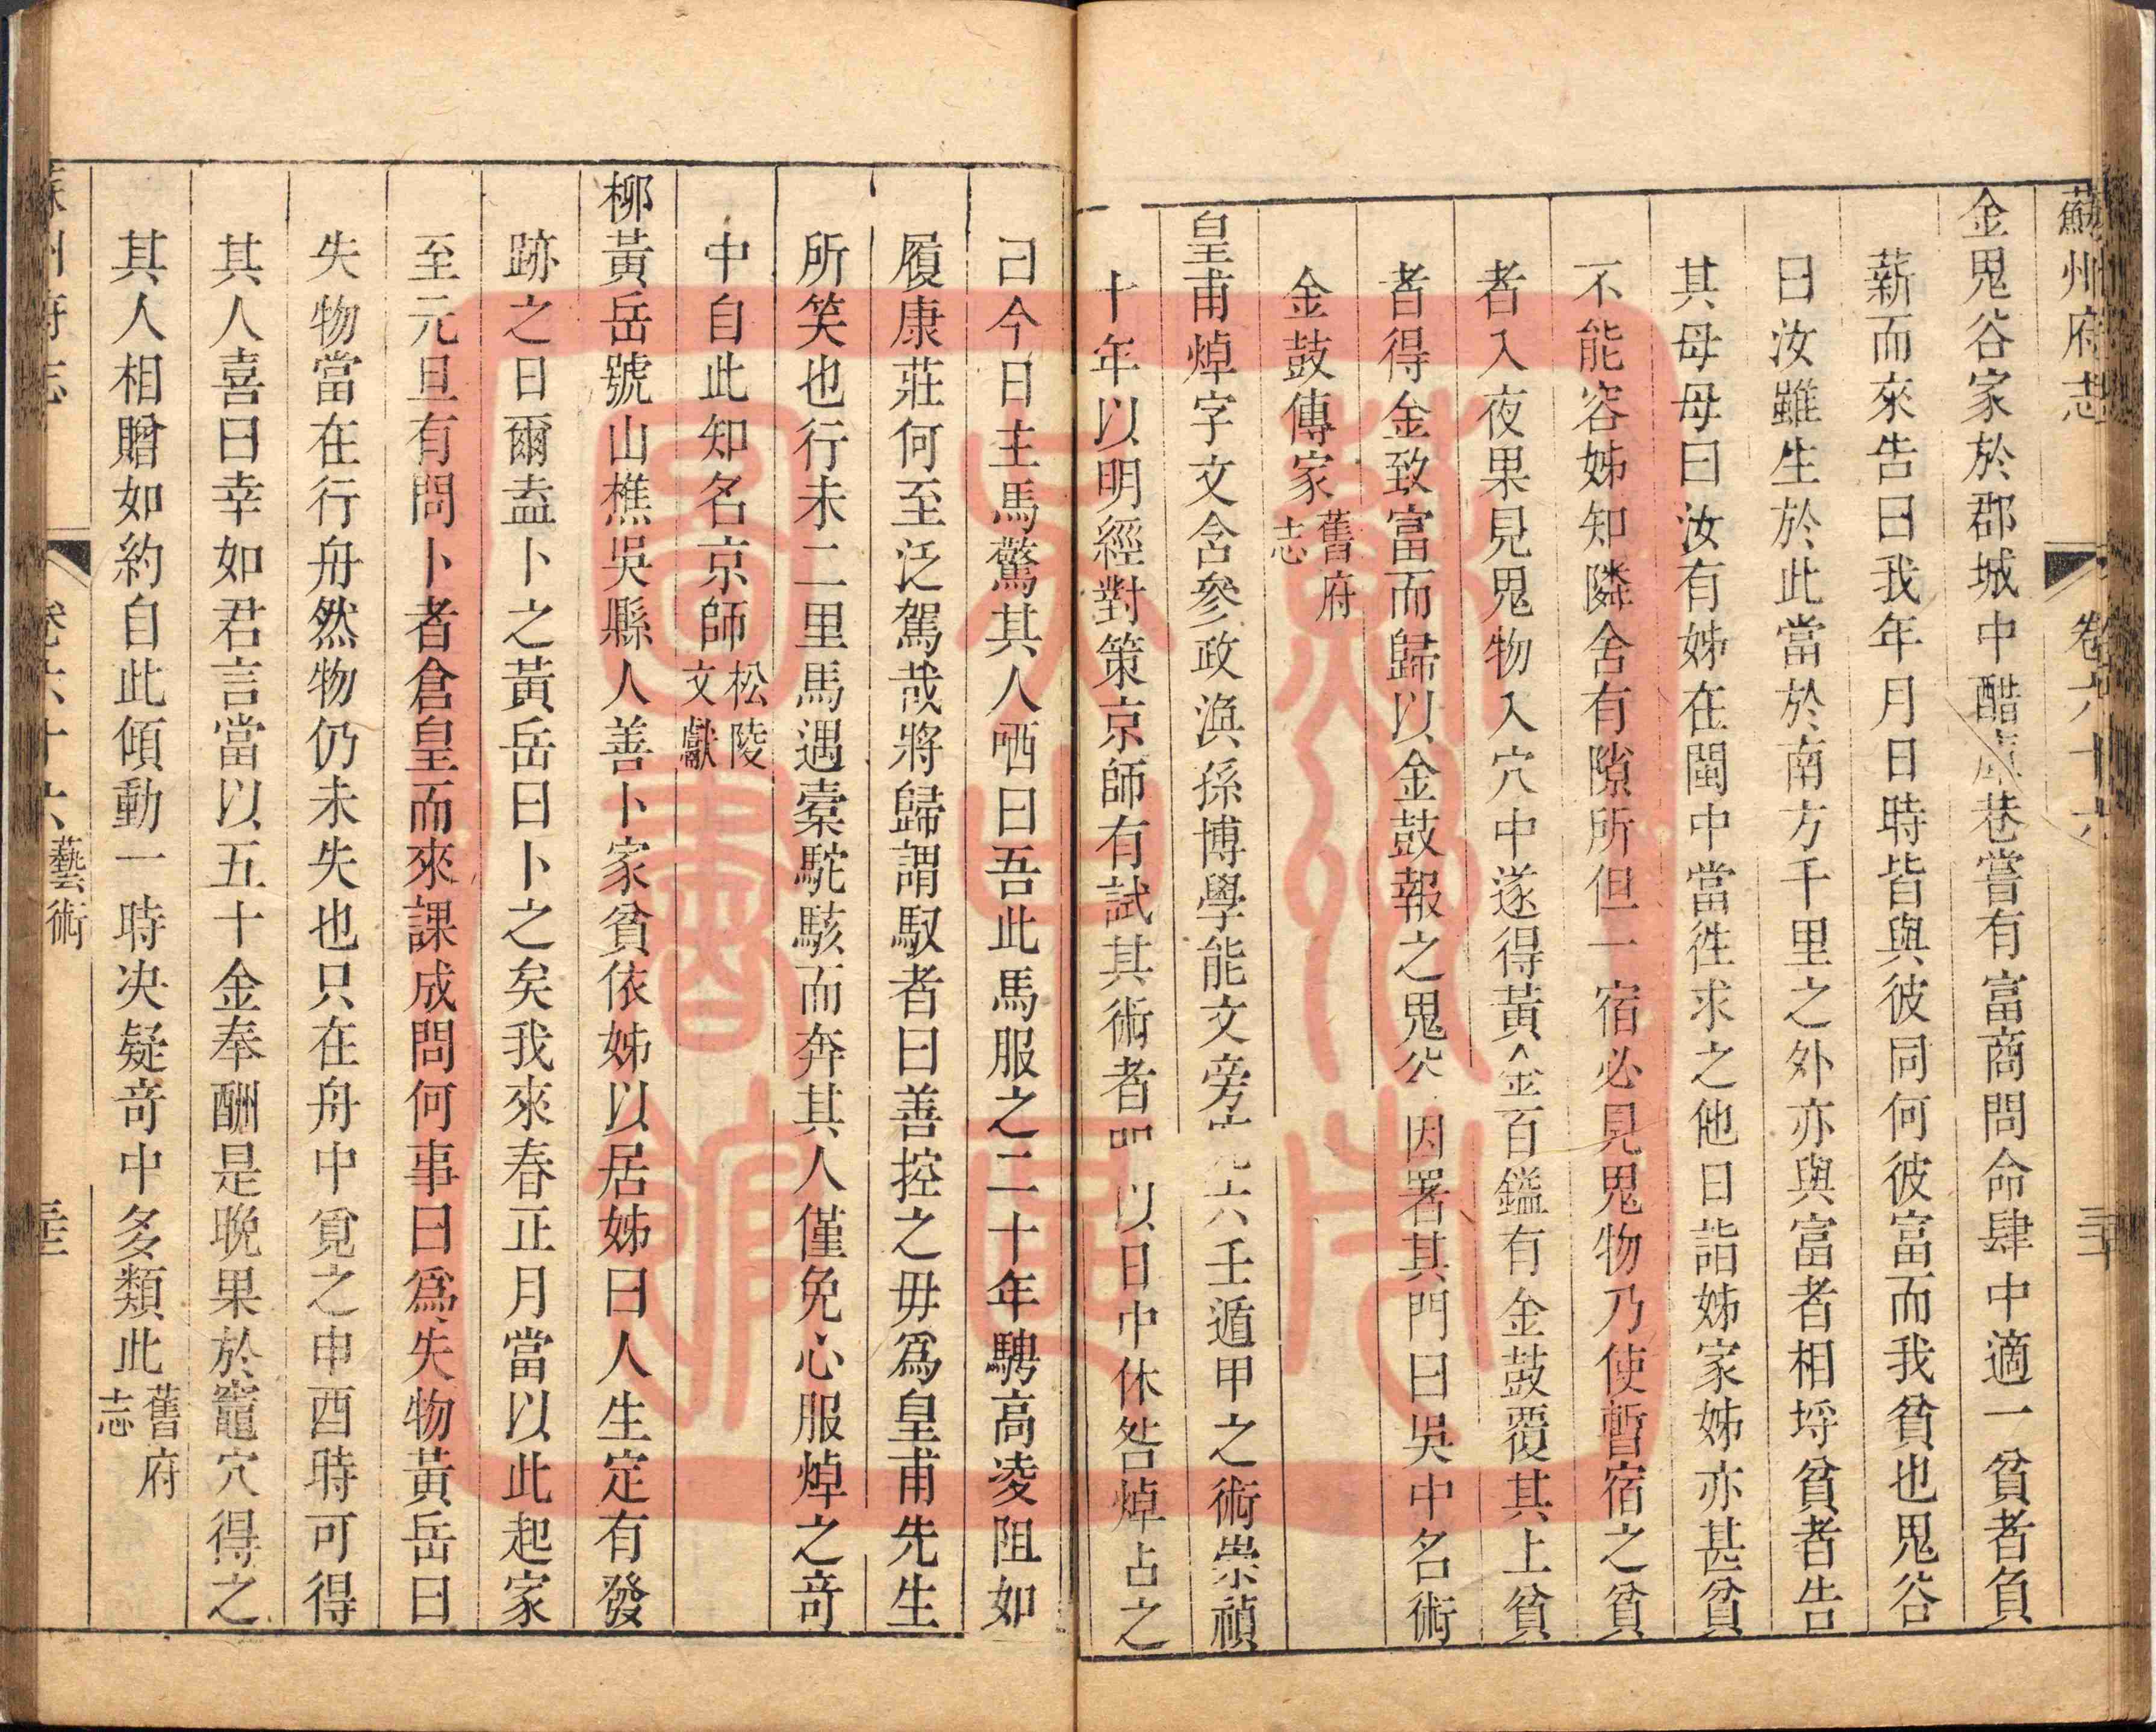 蘇州府志 卷六十六
金鬼谷家於郡城中醋庫巷嘗有富商問命肆中適一貧者負
薪而來告曰我年月日時皆與彼同何彼富而我貧也鬼谷
曰汝雖生於此當於南方千里之外亦與富者相埒貧者告
其母母曰汝有姊在閩中當徃求之他日詣姊家姊亦甚貧
不能容姊知隣舍有隙所但一宿必見鬼物乃使暫宿之貧
者入夜果見鬼物入穴中遂得黃金百鎰有金鼓覆其上貧
者得金致富而歸以金鼓報之鬼谷因署其門曰吳中名術
金鼓傳家舊府志
皇甫焯字文含參政渙孫博學能文旁六壬遁甲之術崇禎
十年以明經對策京師有試其術者以日中休咎焯占之
曰今日主馬驚其人哂曰吾此馬服之二十年騁高凌阻如
履康莊何至泛駕哉將歸謂馭者曰善控之毋爲皇甫先生
所笑也行未二里馬遇橐駝駭而奔其人僅免心服焯之奇
中自此知名京師松陵文獻
柳黃岳號山樵吳縣人善卜家貧依姊以居姊曰人生定有發
跡之日爾盍卜之黃岳曰卜之矣我來春正月當以此起家
至元旦有問卜者倉皇而來課成問何事曰爲失物黃岳曰
失物當在行舟然物仍未失也只在舟中覓之申酉時可得
其人喜曰幸如君言當以五十金奉酬是晚果於竈穴得之
其人相贈如約自此傾動一時决疑奇中多類此舊府志
蘇州府志 卷六十六 藝術
蘇州圖書館